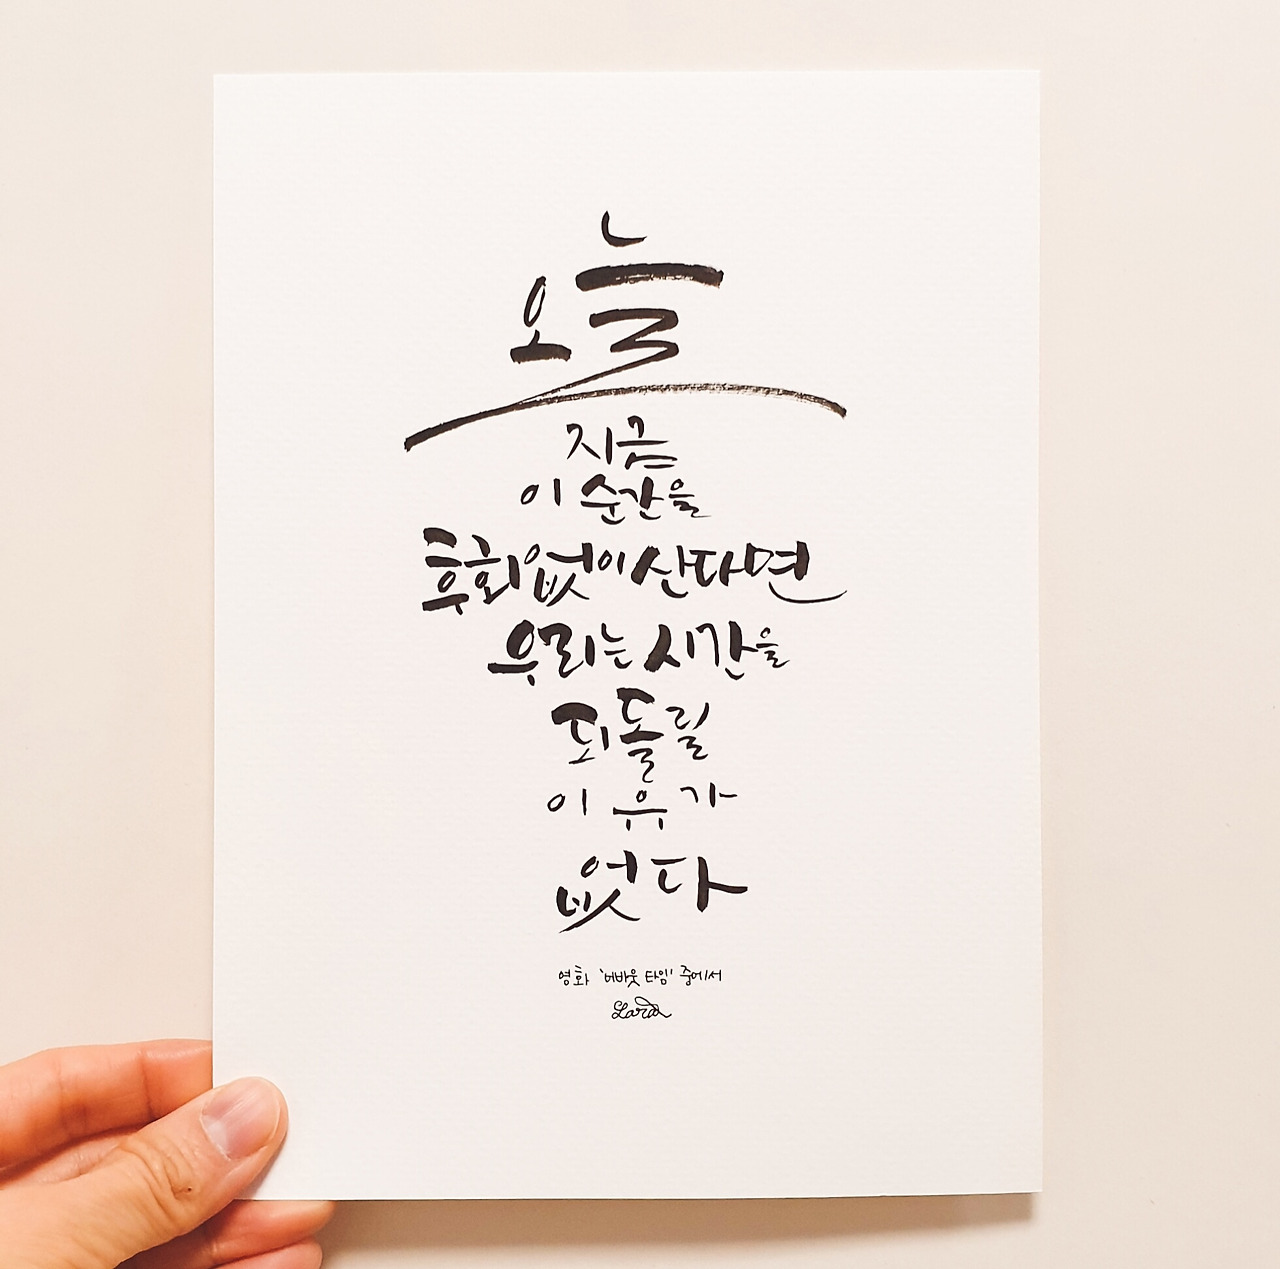 오늘
지금
이 순간을
후회없이 산다면
우리는 시간을
되돌릴
이유가
없다
영화 '어바웃 타임' 중에서
Lara